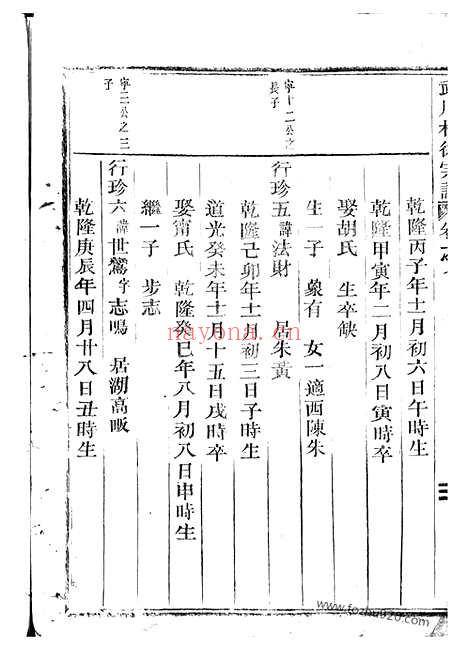 乾隆丙子年十一月初六日午時生
乾隆甲寅年二月初八日寅時卒
娶胡氏 生卒缺
生一子 象有 女一適西陳朱
寜十二公之長子
行珍五諱法財 居朱黃
乾隆己卯年十一月初三日子時生
道光癸未年十一月十五日戌時卒
娶甯氏 乾隆癸巳年八月初八日申時生
繼一子 步志
寜二公之三子
行珍六諱世鸞字志鳴 居湖高畈
乾隆庚辰年四月廿八日丑時生
nayona.cn
www.fozhu920.com